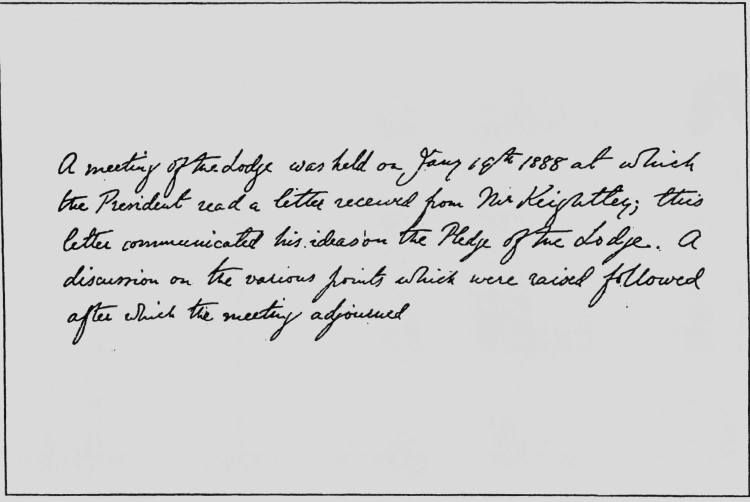 A meeting of the Lodge was held on Jany 19th 1888 at which
the President read a letter received from Mr Keightley; this
letter communicated his ideas on the Pledge of the Lodge. A
discussion on the various points which were raised followed
after which the meeting adjourned